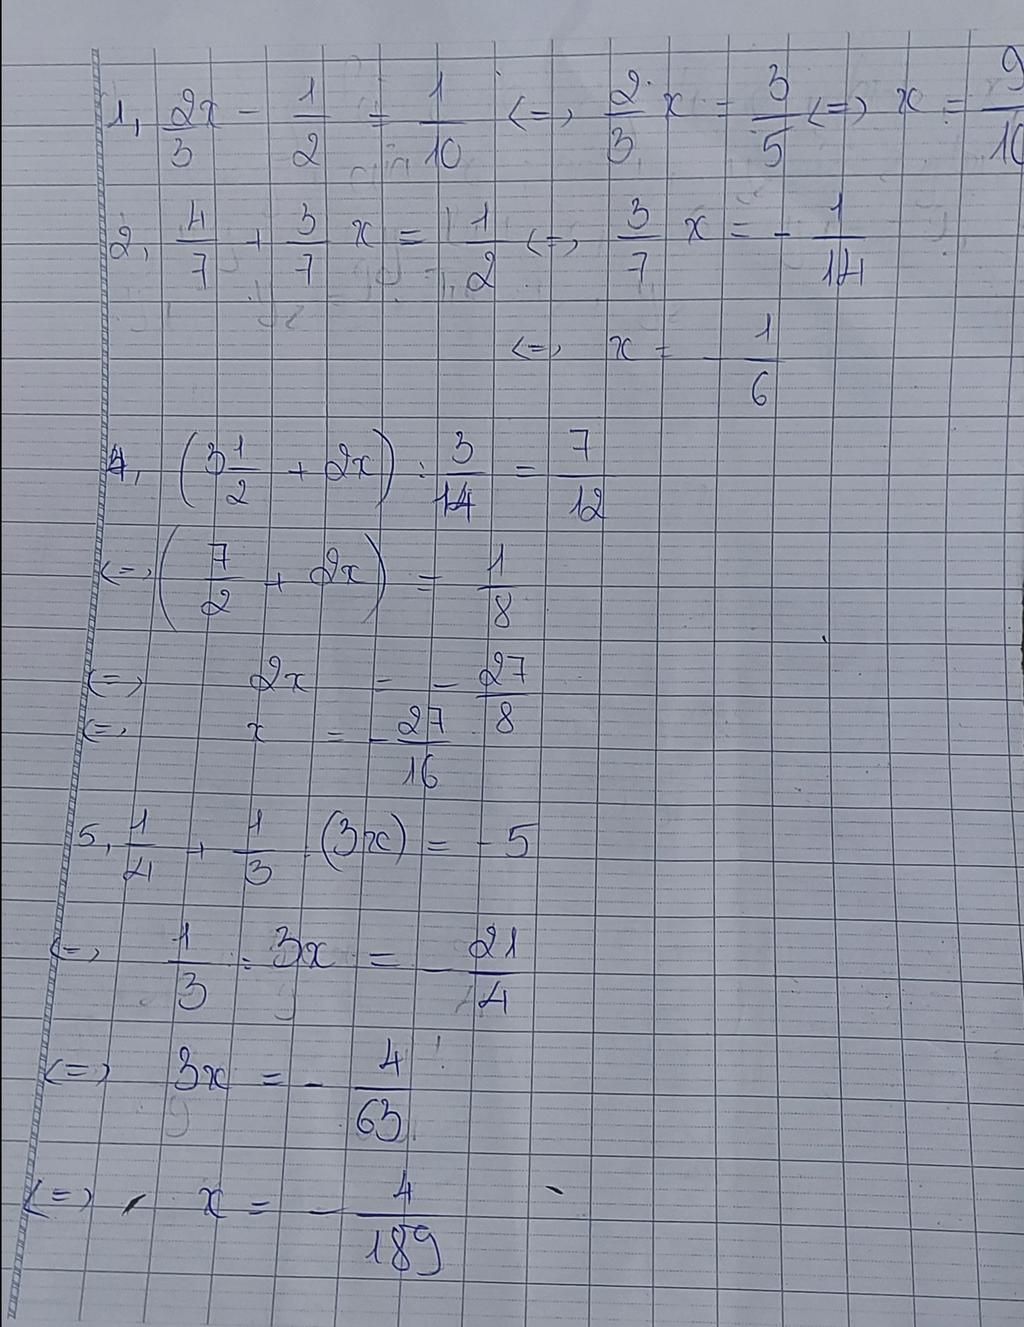 1, 2x/3 - 1/2 = 1/10 <=> 2/3 x = 3/5 <=> x = 9/10
2, 4/7 + 3/7 x = 1/2 <=> 3/7 x = - 1/14
<=> x = - 1/6
4, (3 1/2 + 2x) : 3/14 = 7/12
<=> (7/2 + 2x) = 1/8
<=> 2x = - 27/8
<=> x = - 27/16
5, 1/4 + 1/3 : (3x) = - 5
<=> 1/3 : 3x = - 21/4
<=> 3x = - 4/63
<=> x = - 4/189